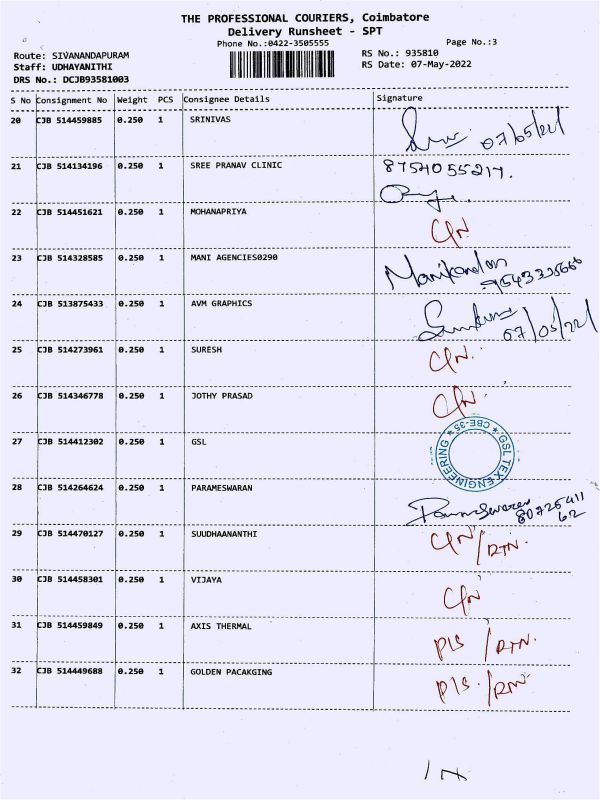 THE PROFESSIONAL COURIERS, Coimbatore
Delivery Runsheet - SPT
Phone No.:0422-3505555 Page No.:3
Route: SIVANANDAPURAM RS No.: 935810
Staff: UDHAYANITHI RS Date: 07-May-2022
DRS No.: DCJB93581003
S No Consignment No Weight PCS Consignee Details Signature
20 CJB 514459885 0.250 1 SRINIVAS 07/05/22
21 CJB 514134196 0.250 1 SREE PRANAV CLINIC
22 CJB 514451621 0.250 1 MOHANAPRIYA C/N
23 CJB 514328585 0.250 1 MANI AGENCIES0290 Manikandan
24 CJB 513875433 0.250 1 AVM GRAPHICS 07/05/22
25 CJB 514273961 0.250 1 SURESH C/N.
26 CJB 514346778 0.250 1 JOTHY PRASAD C/N.
27 CJB 514412302 0.250 1 GSL GSL TEX ENGINEERING * CBE-35 *
28 CJB 514264624 0.250 1 PARAMESWARAN Parameswaran
29 CJB 514470127 0.250 1 SUUDHAANANTHI C/N / RTN.
30 CJB 514458301 0.250 1 VIJAYA C/N
31 CJB 514459849 0.250 1 AXIS THERMAL P1S / RTN.
32 CJB 514449688 0.250 1 GOLDEN PACAKGING P1S. / RTN